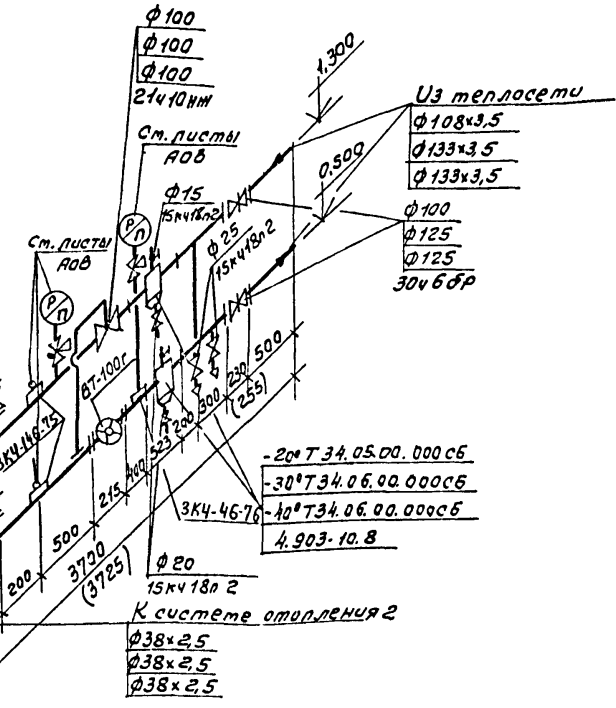 ф100
ф100
ф100
21ч10нж
См. листы
АОВ
1,300
Из теплосети
ф108×3,5
ф133×3,5
ф133×3,5
0,500
ф15
15кч18п2
ф25
15кч18п2
Р
П
ф100
ф125
ф125
30ч6бр
См. листы
АОВ
Р
П
ВТ-100г
ЗК4-146-75
500
230
(255)
300
200
523
400
215
500
200
3700
(3725)
-20° Т34.05.00.000сб
-30° Т34.06.00.000сб
-40° Т34.06.00.000сб
4.903-10.8
ЗК4-46-76
ф20
15кч18п2
К системе отопления 2
ф38×2,5
ф38×2,5
ф38×2,5